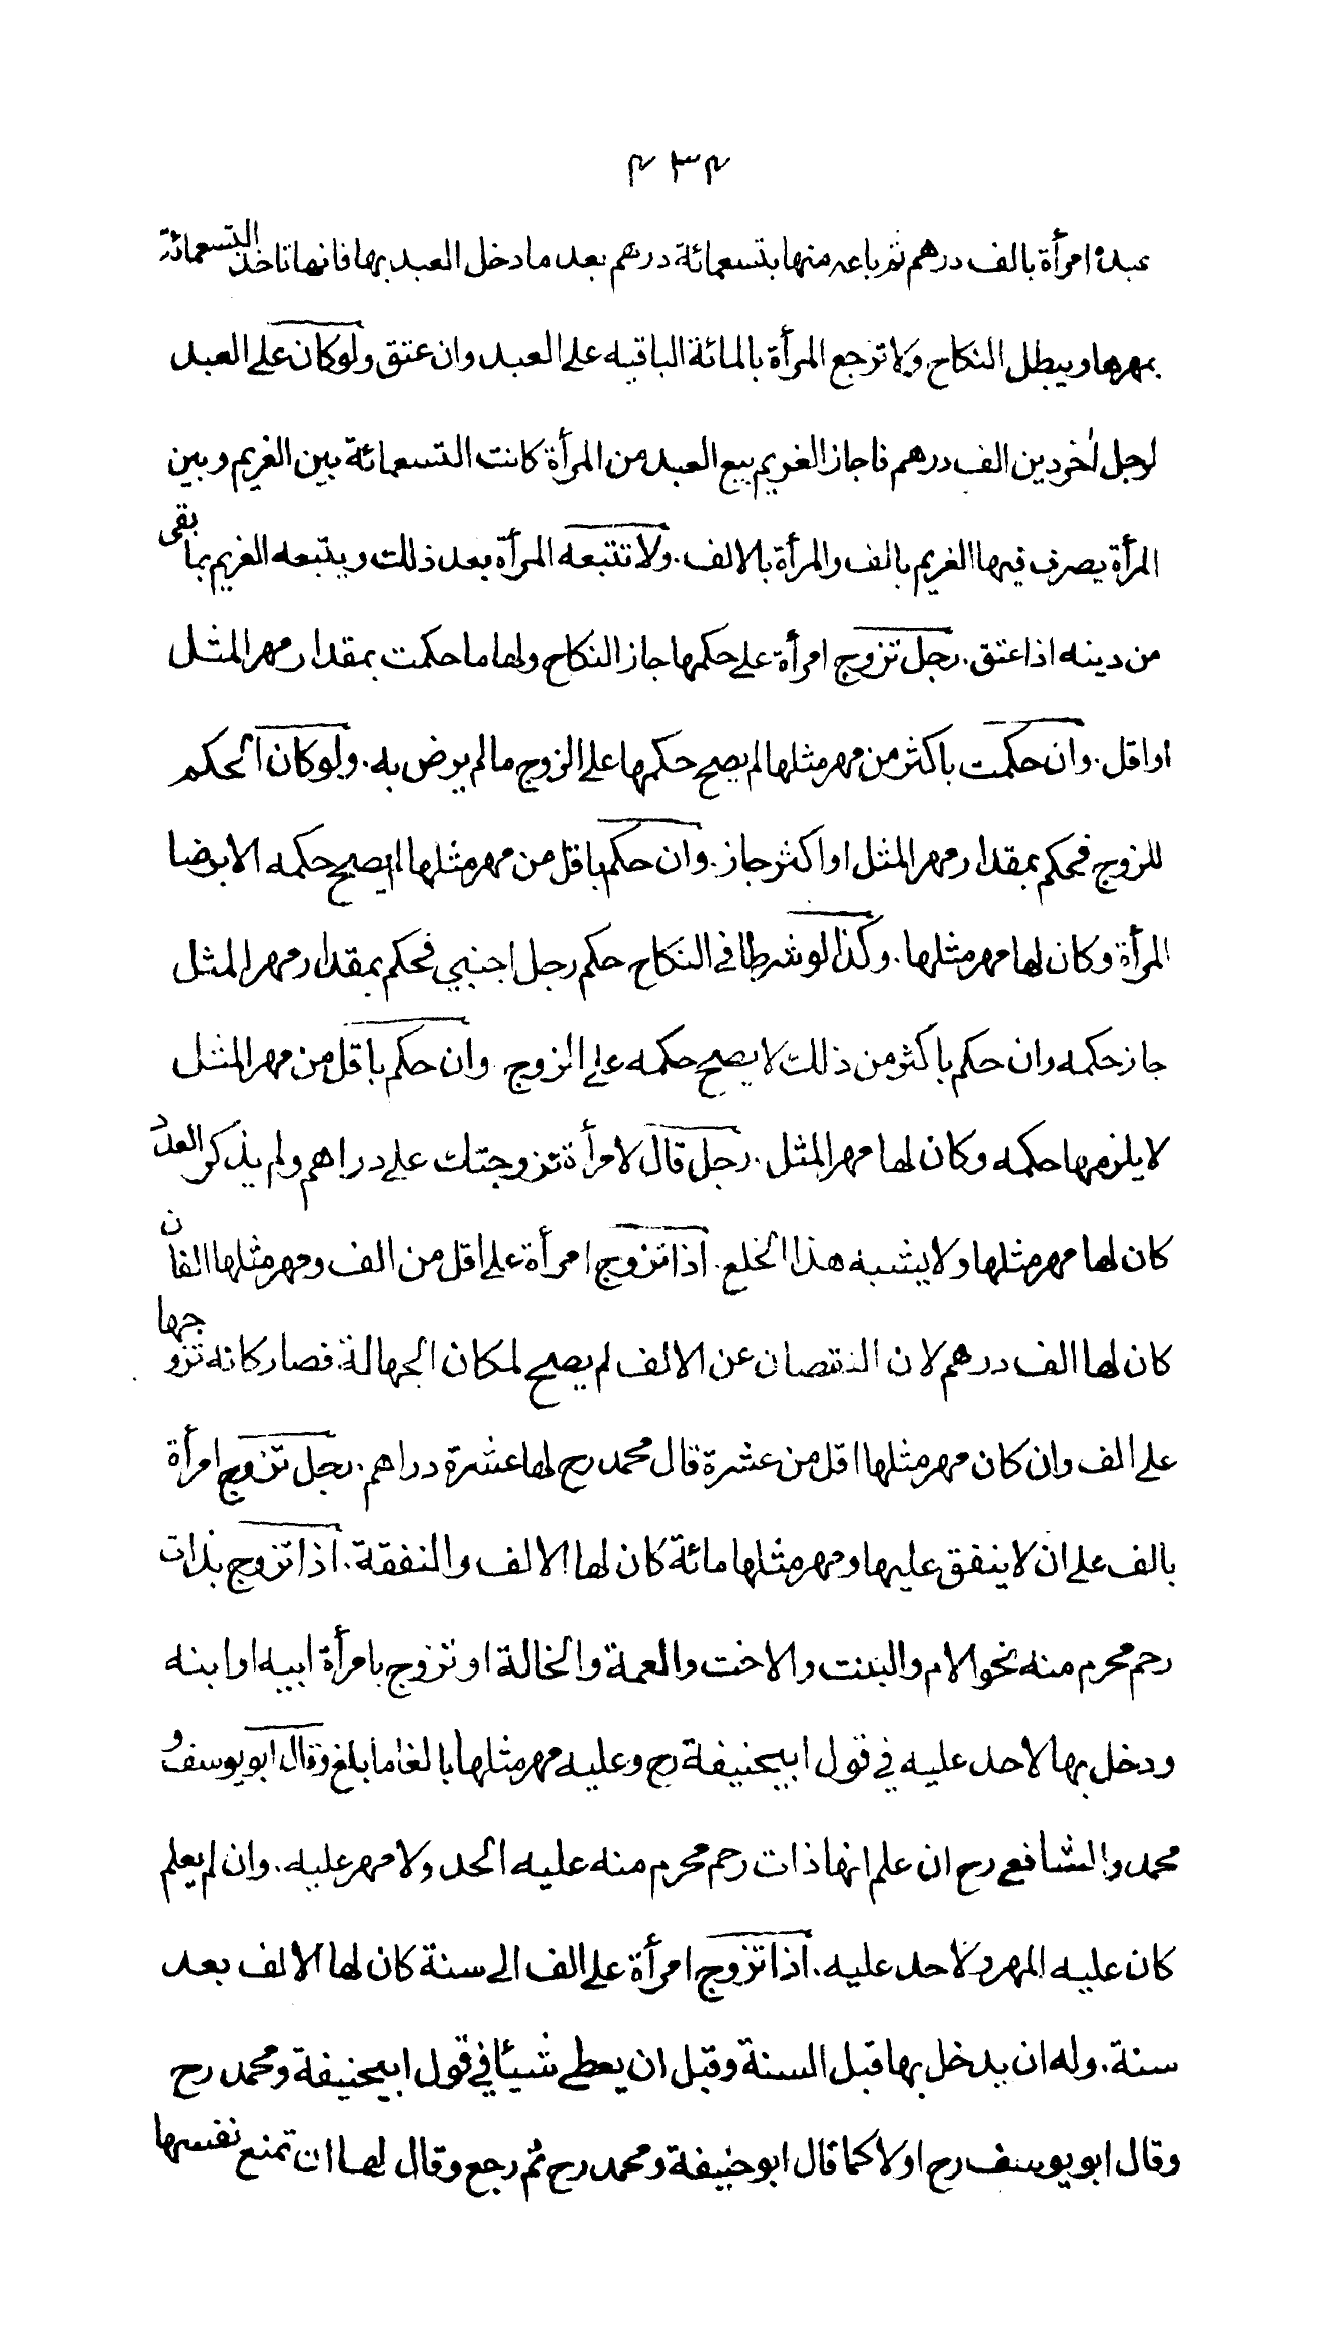 ۴۳۴
عبده امرأة بالف درهم ثم باعه منها بتسعمائة درهم بعد ما دخل العبد بها فانها تاخذ التسعمائة
بمهرها ويبطل النكاح ولا ترجع المرأة بالمائة الباقيه على العبد وان عتق ولو كان على العبد
لرجل اٰخر دين الف درهم فاجاز الغريم بيع العبد من المرأة كانت التسعمائة بين الغريم وبين
المرأة يصرف فيها الغريم بالف والمرأة بالالف. ولا تتبعه المرأة بعد ذلك ويتبعه الغريم بما بقى
من دينه اذا عتق. رجل تزوج امرأة على حكمها جاز النكاح ولها ما حكمت بمقدار مهر المثل
او اقل. وان حكمت باكثر من مهر مثلها لم يصح حكمها على الزوج ما لم يرض به. ولو كان الحكم
للزوج فحكم بمقدار مهر المثل او اكثر جاز. وان حكم باقل من مهر مثلها لم يصح حكمه الا برضا
المرأة وكان لها مهر مثلها. وكذا لو شرطا في النكاح حكم رجل اجنبي فحكم بمقدار مهر المثل
جاز حكمه وان حكم باكثر من ذلك لا يصح حكمه على الزوج وان حكم باقل من مهر المثل
لا يلزمها حكمه وكان لها مهر المثل. رجل قال لامرأة تزوجتك على دراهم ولم يذكر العدد
كان لها مهر مثلها ولا يشبه هذا الخلع. اذا تزوج امرأة على اقل من الف ومهر مثلها الفان
كان لها الف درهم لان النقصان عن الالف لم يصح لمكان الجهالة فصار كانه تزوجها
على الف وان كان مهر مثلها اقل من عشرة قال محمد رح لها عشرة دراهم. رجل تزوج امرأة
بالف على ان لا ينفق عليها ومهر مثلها مائة كان لها الالف والنفقة. اذا تزوج بذات
رحم محرم منه نحو الام والبنت والاخت والعمة والخالة او تزوج بامرأة ابيه او ابنه
ودخل بها لا حد عليه في قول ابيحنيفة رح وعليه مهر مثلها بالغا ما بلغ وقال ابو يوسف و
محمد والشافعي رح ان علم انها ذات رحم محرم منه عليه الحد ولا مهر عليه. وان لم يعلم
كان عليه المهر ولا حد عليه. اذا تزوج امرأة على الف الى سنة كان لها الالف بعد
سنة. وله ان يدخل بها قبل السنة وقبل ان يعطى شيئا في قول ابيحنيفة ومحمد رح
وقال ابو يوسف رح اولا كما قال ابو حنيفة ومحمد رح ثم رجع وقال لها ان تمنع نفسها